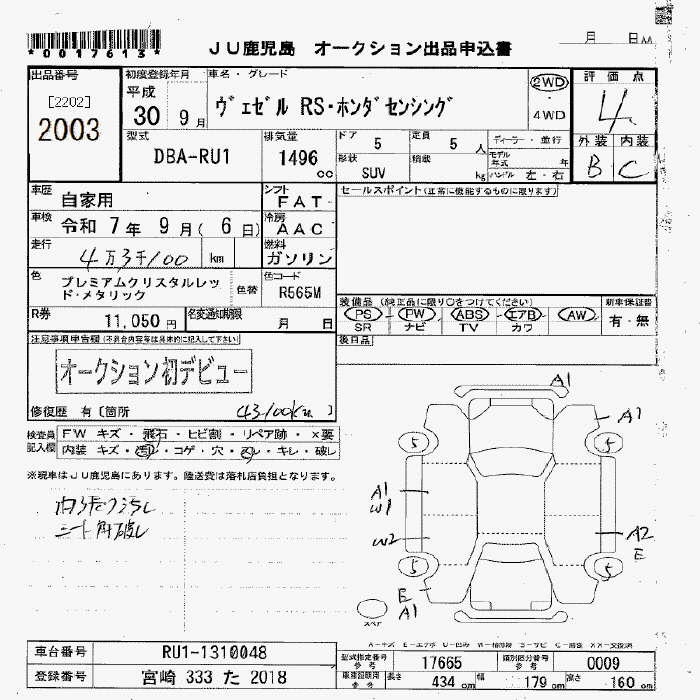 *0017613*
JU鹿児島 オークション出品申込書
月 日
出品番号 初度登録年月 車名・グレード 評価点
[2202]
2003
平成
30 9月
ヴェゼル RS・ホンダセンシング
2WD
4WD
4
外装 内装
B C
型式 排気量 ドア 定員 ディーラー・並行
DBA-RU1 1496 cc 5 5 人
形状 積載 モデル年式 年
SUV kg ハンドル 左・右
車歴 自家用 シフト FAT セールスポイント(正常に機能するものに限ります)
車検 令和 7年 9月( 6日) 冷房 AAC
走行 4万3千100 km 燃料 ガソリン
色 プレミアムクリスタルレッド・メタリック 色替 色コード R565M
装備品 (純正品に限り○をつけてください) 新車保証書
PS PW ABS エアB AW 有・無
SR ナビ TV カワ
R券 11,050円 名変通知期限 月 日
後日品
注意事項申告欄(不具合内容等は具体的に記入して下さい)
オークション初デビュー
修復歴 有〔箇所 43100km 〕
検査員記入欄 FW キズ・飛石・ヒビ割・リペア跡・×要
内装 キズ・汚れ・コゲ・穴・・キレ・破レ
※現車はJU鹿児島にあります。陸送費は落札店負担となります。
汚レ
シート 破レ
A1
A1
5 5
A1
W1
W2
A2
E
5 5
E
A1
スペア
車台番号 RU1-1310048
登録番号 宮崎 333 た 2018
型式指定番号 参考 17665 類別区分番号 参考 0009
車車証記載 参考 長さ 434 cm 幅 179 cm 高さ 160 cm